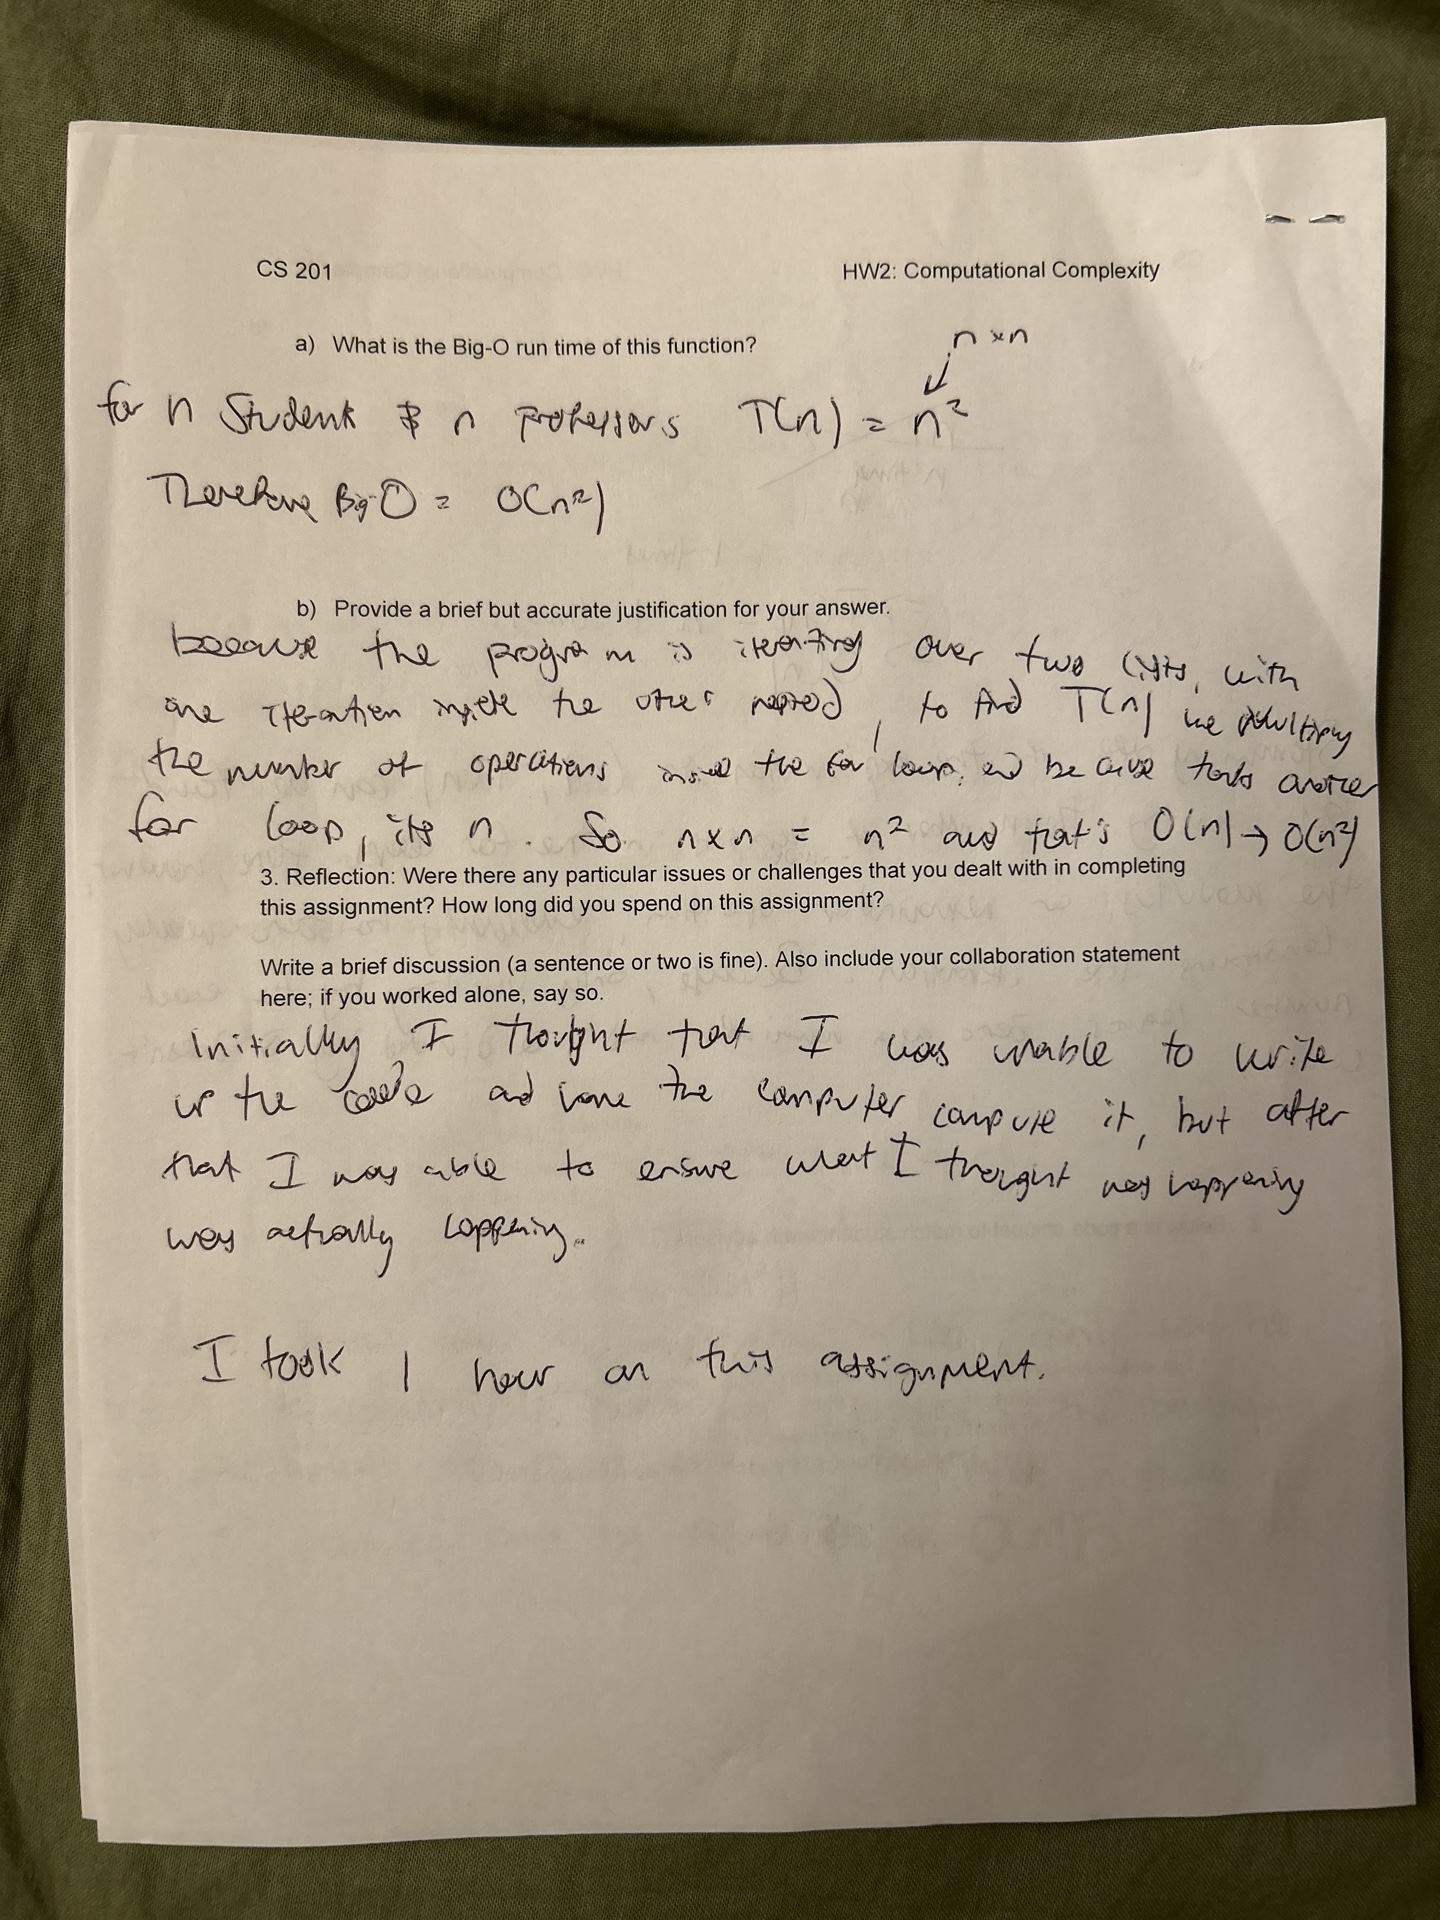 CS 201
HW2: Computational Complexity
a) What is the Big-O run time of this function?
n × n
for n Students & n professors T(n) = n²
Therefore Big-O = O(n²)
b) Provide a brief but accurate justification for your answer.
because the program is iterating over two lists, with
one iteration inside the other nested, to find T(n) we multiply
the number of operations inside the for loop, and because that's another
for loop, its n. So n x n = n² and that's O(n) → O(n²)
3. Reflection: Were there any particular issues or challenges that you dealt with in completing
this assignment? How long did you spend on this assignment?
Write a brief discussion (a sentence or two is fine). Also include your collaboration statement
here; if you worked alone, say so.
Initially I thought that I was unable to write
up the code and have the computer compute it, but after
that I was able to ensure what I thought was happening
was actually happening.
I took 1 hour on this assignment.